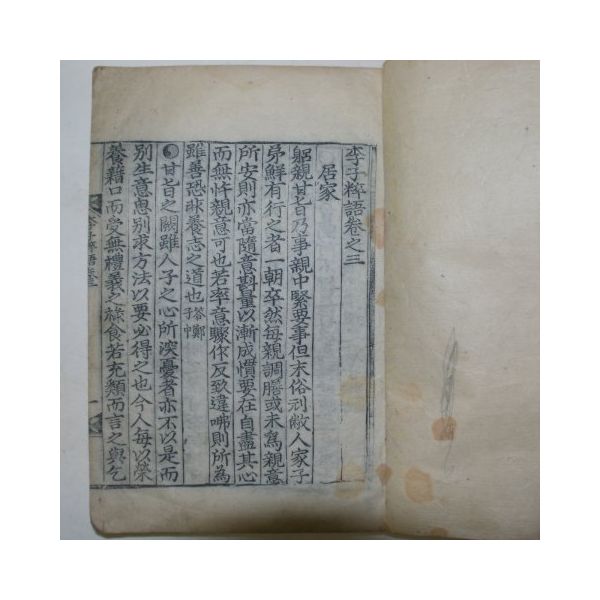 李子粹語卷之三
居家
躬親甘旨乃事親中緊要事但末俗刓敝人家子
弟鮮有行之者一朝卒然每親調膳或未爲親意
所安則亦當隨意斟量以漸成慣要在自盡其心
而無忤親意可也若率意驟作反致違咈則所爲
雖善恐非養志之道也 答鄭子中
甘旨之闕雖人子之心所深憂者亦不以是而
別生意思別求方法以要必得之也今人每以榮
養藉口而受無禮義之祿食若充類而言之與乞
李子粹語卷三
一